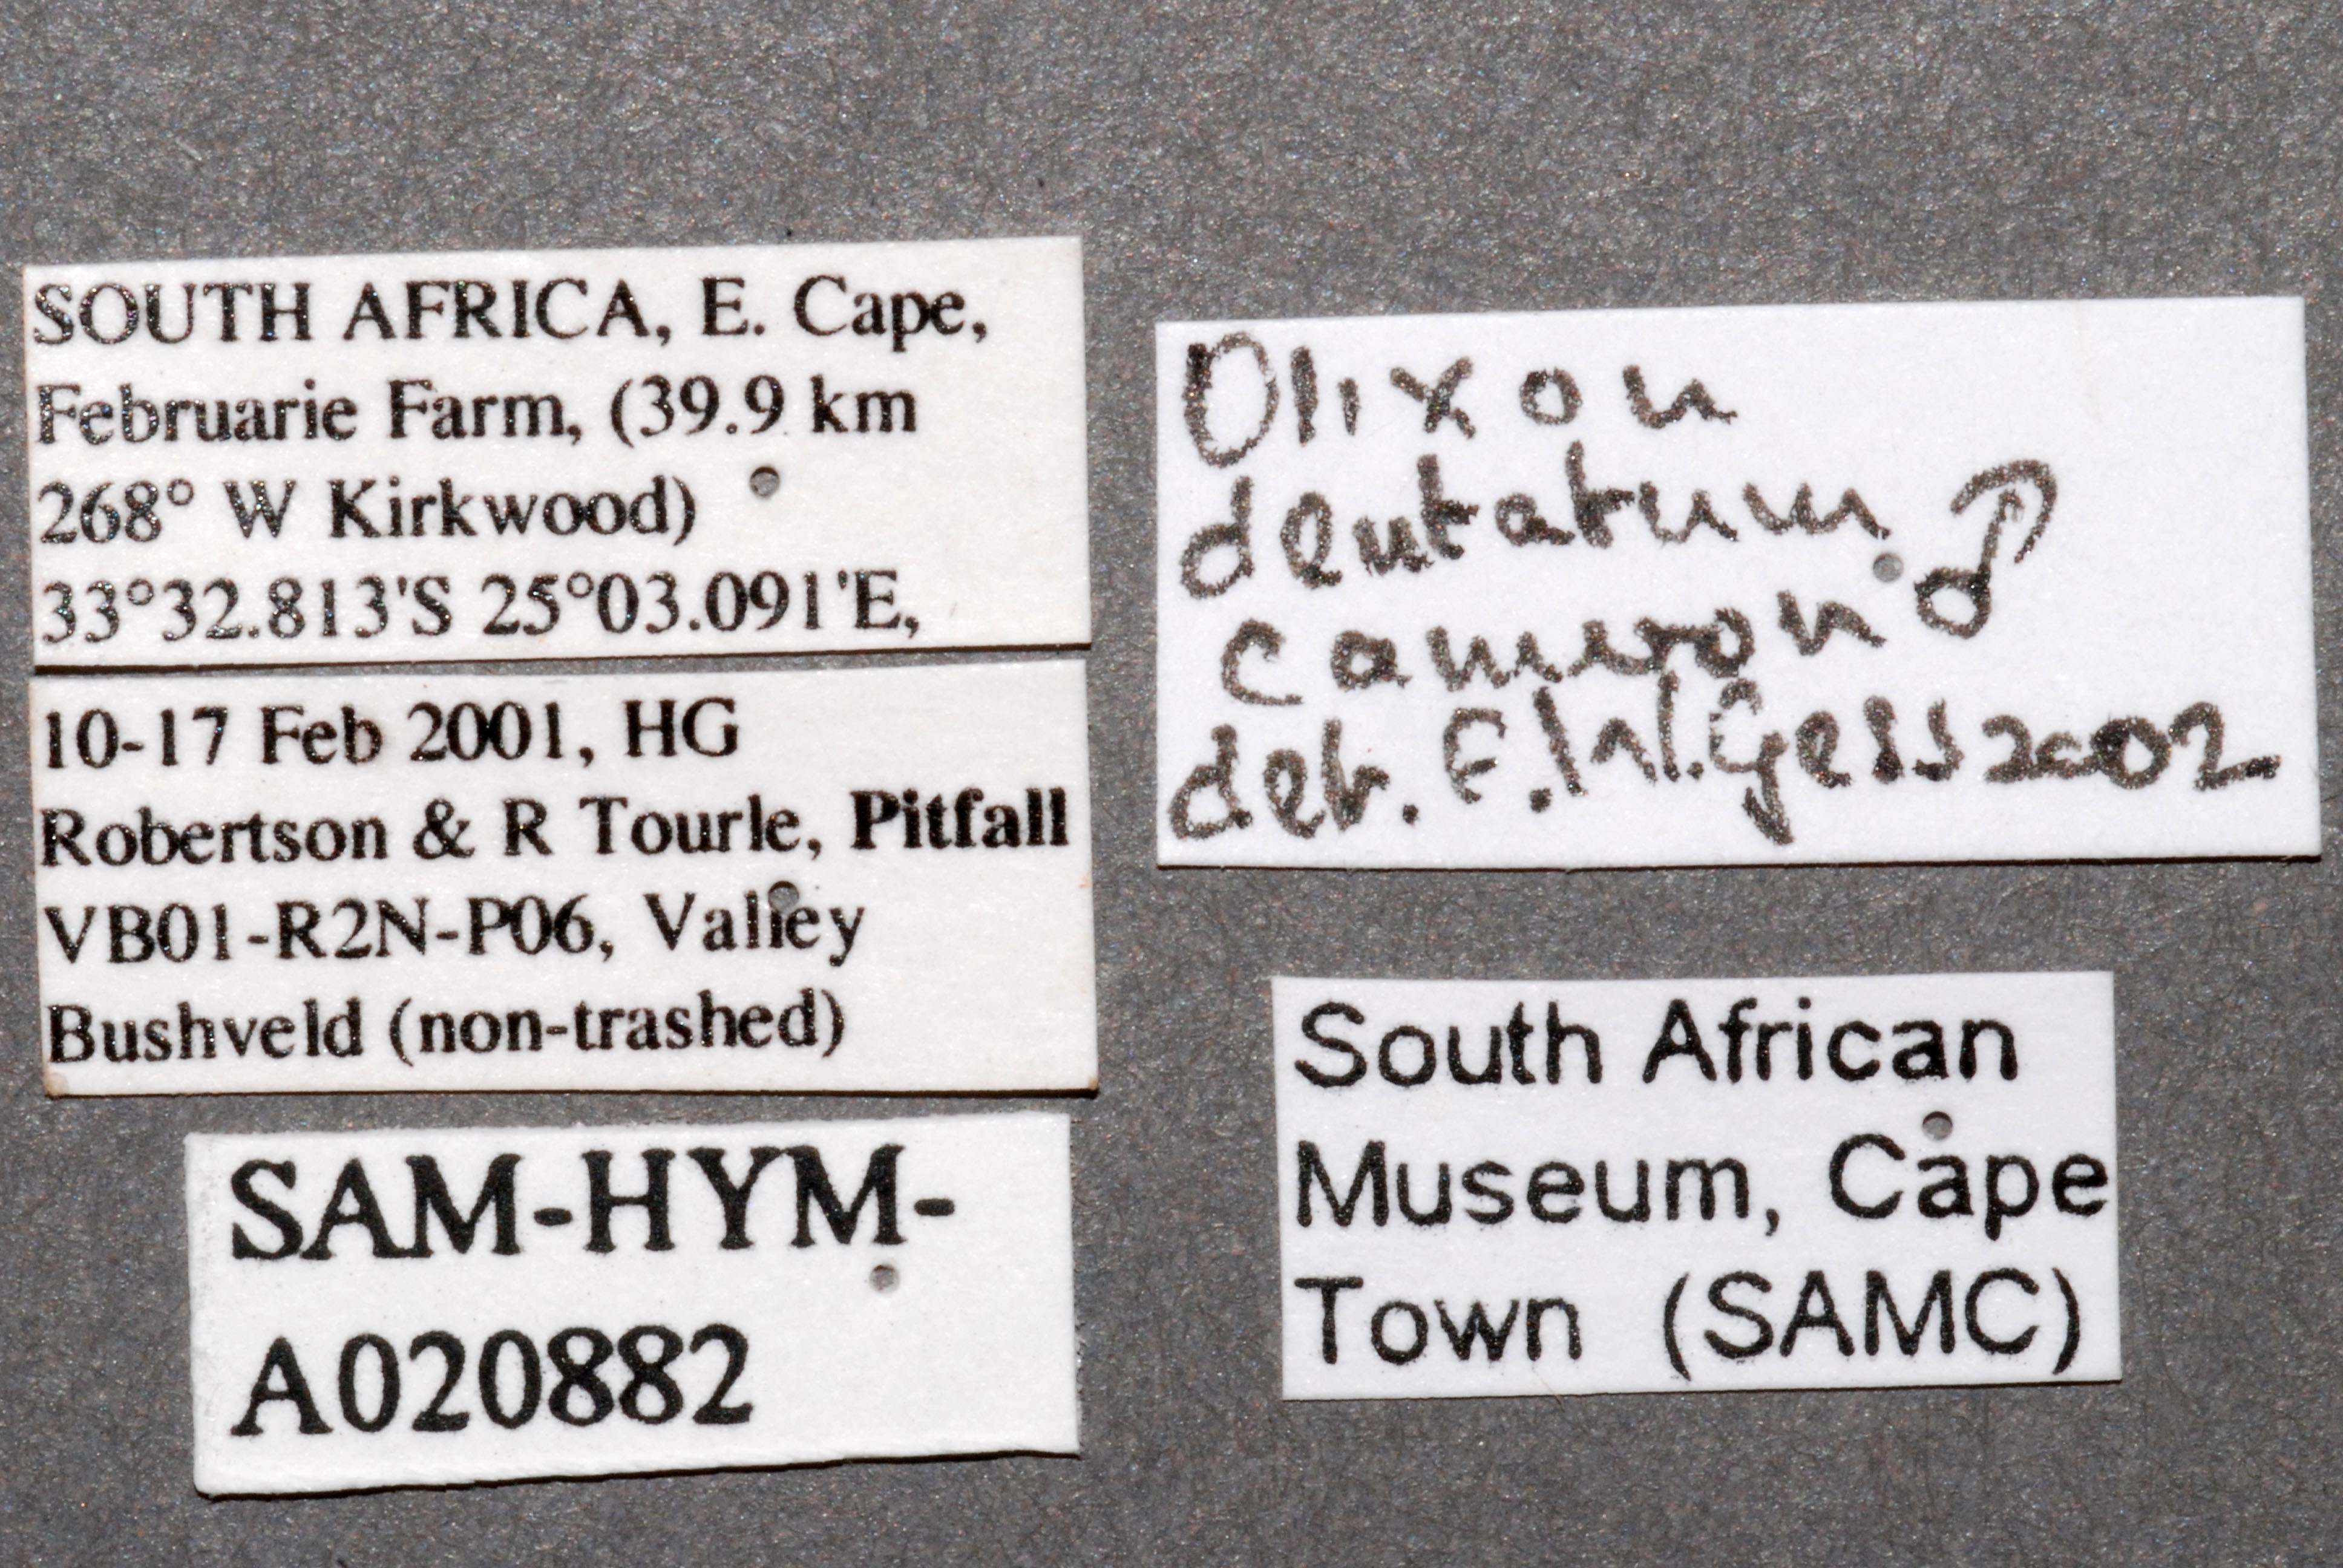 SOUTH AFRICA, E. Cape,
Februarie Farm, (39.9 km
268° W Kirkwood)
33°32.813'S 25°03.091'E,
10-17 Feb 2001, HG
Robertson & R Tourle, Pitfall
VB01-R2N-P06, Valley
Bushveld (non-trashed)
SAM-HYM-
A020882
Olixon
dentatum ♂
cameron
det. F.W.Gess 2002
South African
Museum, Cape
Town (SAMC)